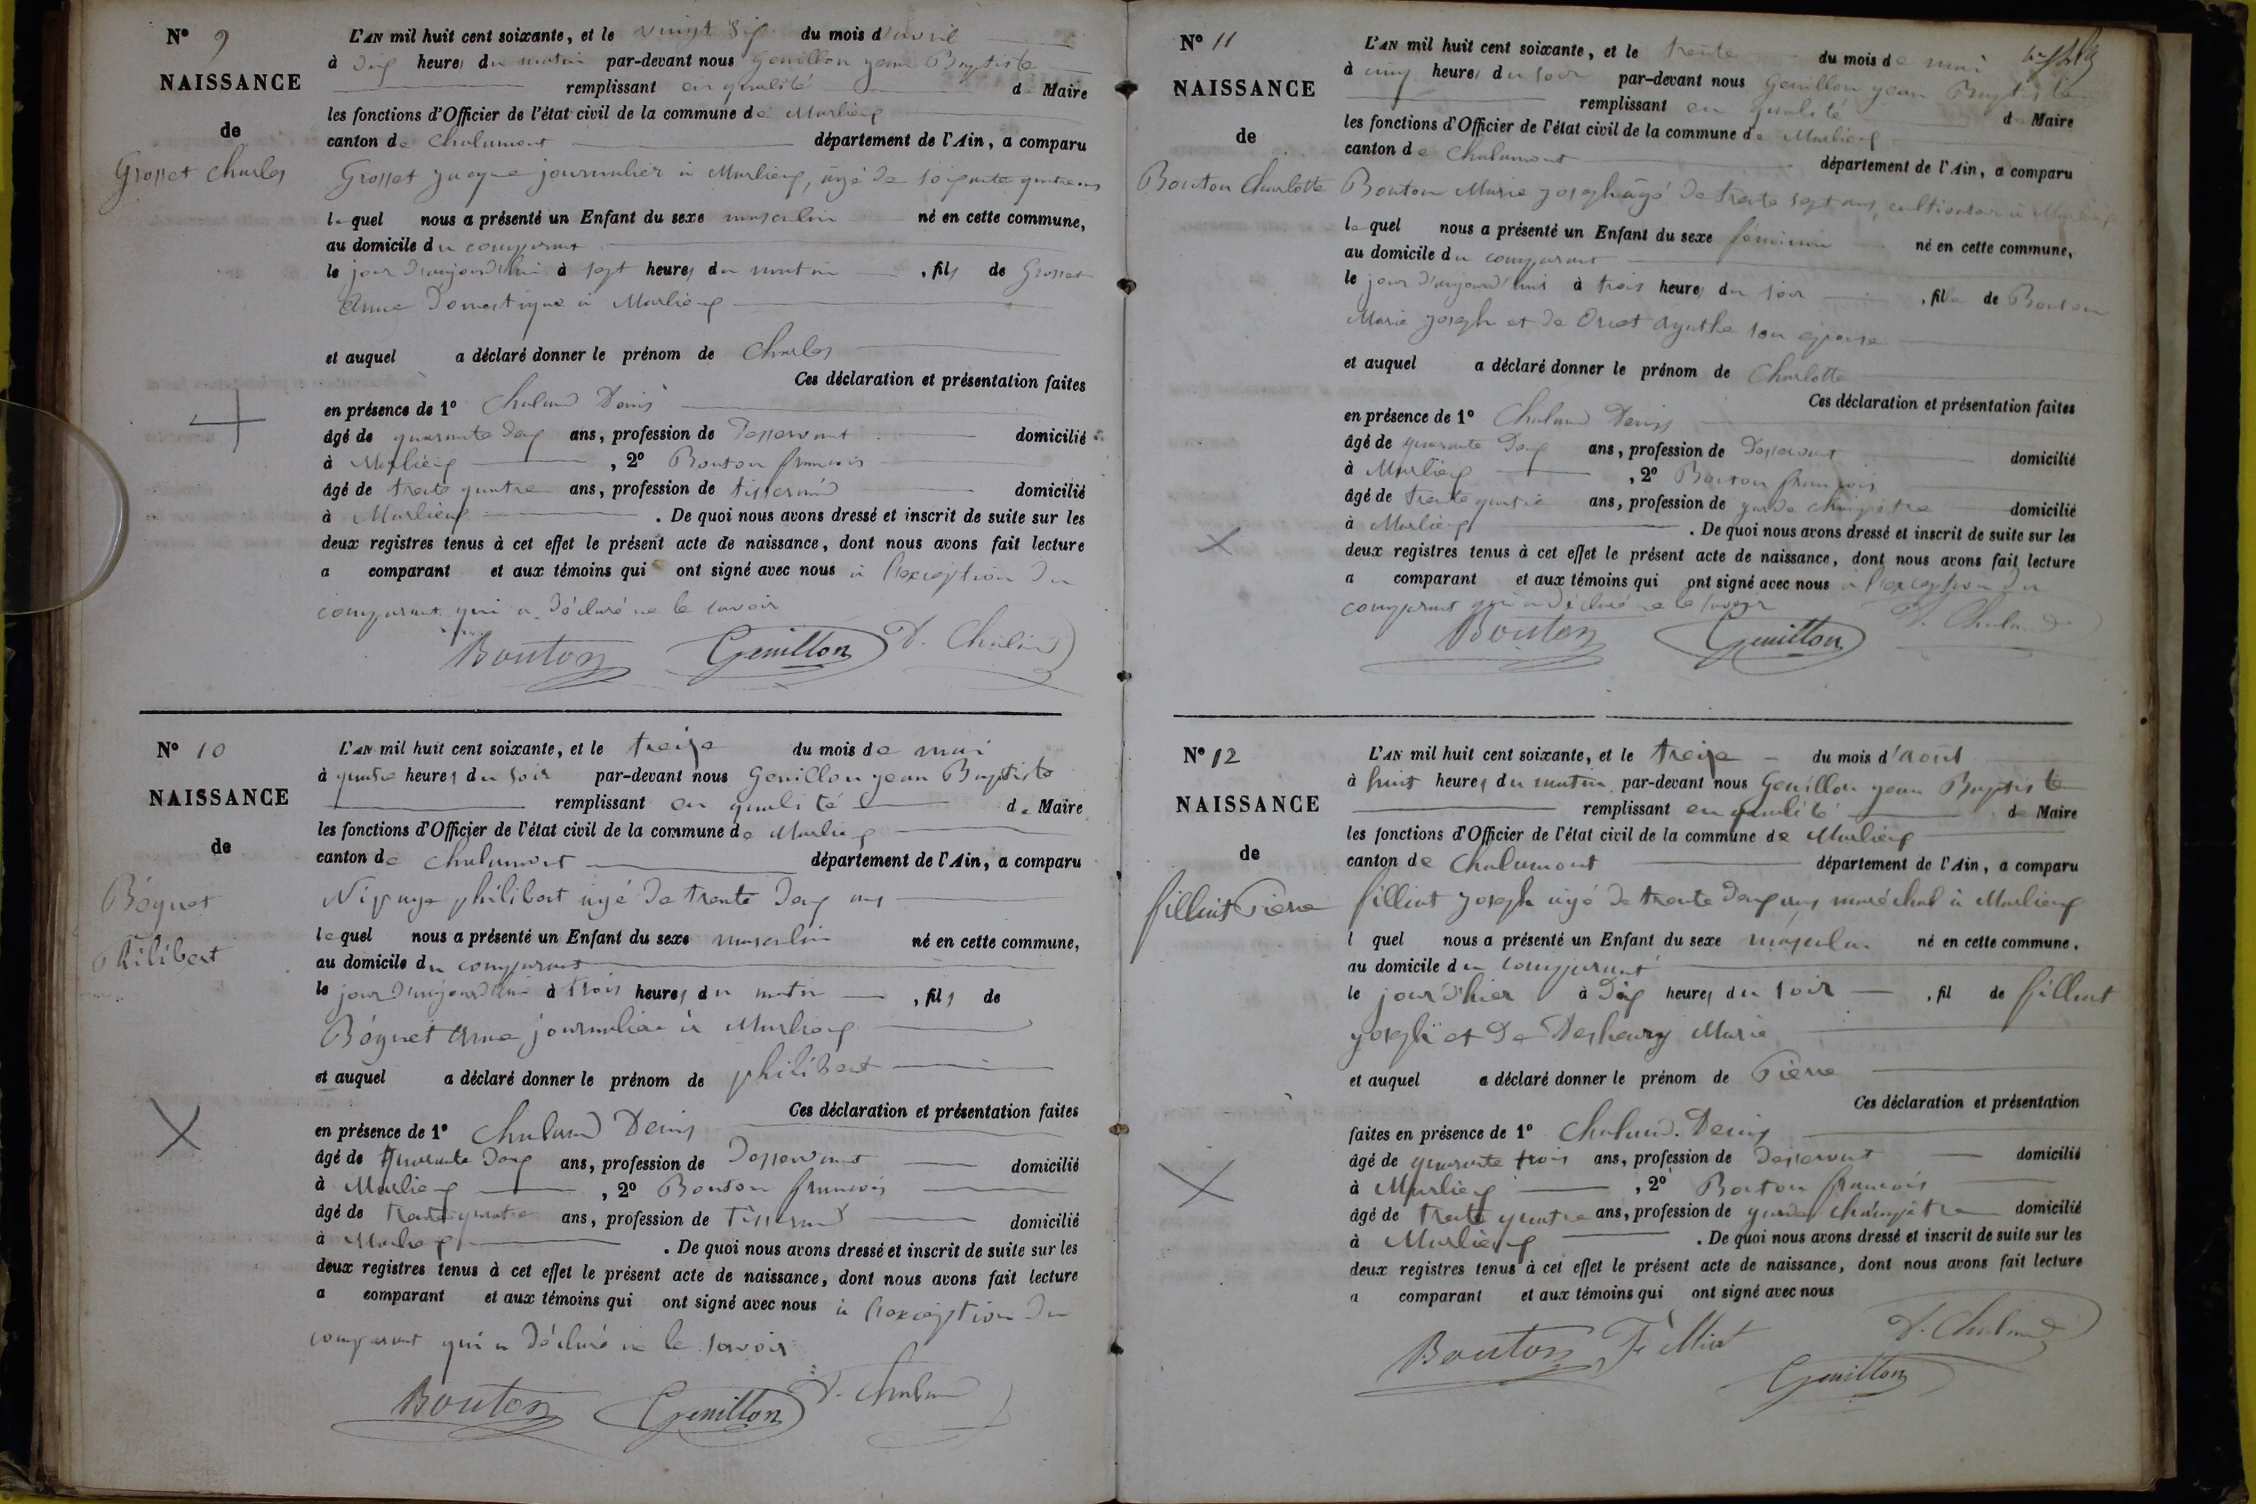 N° 9
NAISSANCE
de
Grosset Charles
L'AN mil huit cent soixante, et le vingt six du mois d'avril
à dix heures du matin par-devant nous Genillon jean Baptiste
remplissant en qualité de Maire
les fonctions d'Officier de l'état civil de la commune de Marlieux
canton de Chalamont département de l'Ain, a comparu
Grosset jacque journalier à Marlieux, agé de soixante quatre ans
lequel nous a présenté un Enfant du sexe masculin né en cette commune,
au domicile du comparant
le jour d'aujourd'hui à sept heures du matin, fils de Grosset
Anne Domestique à Marlieux
et auquel a déclaré donner le prénom de Charles
Ces déclaration et présentation faites
en présence de 1° Chaland Denis
âgé de quarante deux ans, profession de Desservant domicilié
à Marlieux, 2° Bouton francois
âgé de trente quatre ans, profession de tisserand domicilié
à Marlieux. De quoi nous avons dressé et inscrit de suite sur les
deux registres tenus à cet effet le présent acte de naissance, dont nous avons fait lecture
a comparant et aux témoins qui ont signé avec nous à l'exception du
comparant qui a déclaré ne le savoir
Bouton Genillon D. Chaland
N° 10
NAISSANCE
de
Béguet
Philibert
L'AN mil huit cent soixante, et le treize du mois de mai
à quatre heures du soir par-devant nous Genillon jean Baptiste
remplissant en qualité de Maire
les fonctions d'Officier de l'état civil de la commune de Marlieux
canton de Chalamont département de l'Ain, a comparu
philibert agé de trente deux ans
lequel nous a présenté un Enfant du sexe masculin né en cette commune,
au domicile du comparant
le jour d'aujourd'hui à trois heures du matin, fils de
Béguet Anne, journalière à Marlieux
et auquel a déclaré donner le prénom de philibert
Ces déclaration et présentation faites
en présence de 1° Chaland Denis
âgé de quarante deux ans, profession de Desservant domicilié
à Marlieux, 2° Bouton francois
âgé de trente quatre ans, profession de Tisserand domicilié
à Marlieux. De quoi nous avons dressé et inscrit de suite sur les
deux registres tenus à cet effet le présent acte de naissance, dont nous avons fait lecture
a comparant et aux témoins qui ont signé avec nous à l'exception du
comparant qui a déclaré ne le savoir
Bouton Genillon D. Chaland
N° 11
NAISSANCE
de
Bouton Charlotte
L'AN mil huit cent soixante, et le trente du mois de mai
à cinq heures du soir par-devant nous Genillon jean Baptiste
remplissant en qualité de Maire
les fonctions d'Officier de l'état civil de la commune de Marlieux
canton de Chalamont département de l'Ain, a comparu
Bouton Marie joseph agé de trente sept ans, cultivateur à Marlieux
lequel nous a présenté un Enfant du sexe féminin né en cette commune,
au domicile du comparant
le jour d'aujourd'hui à trois heures du soir, fille de Bouton
Marie joseph et de Agathe son épouse
et auquel a déclaré donner le prénom de Charlotte
Ces déclaration et présentation faites
en présence de 1° Chaland Denis
âgé de quarante deux ans, profession de Desservant domicilié
à Marlieux, 2° Bouton francois
âgé de trente quatre ans, profession de garde champêtre domicilié
à Marlieux. De quoi nous avons dressé et inscrit de suite sur les
deux registres tenus à cet effet le présent acte de naissance, dont nous avons fait lecture
a comparant et aux témoins qui ont signé avec nous à l'exception du
comparant qui a déclaré ne le savoir
Bouton Genillon D. Chaland
N° 12
NAISSANCE
de
filliat Pierre
L'AN mil huit cent soixante, et le treize du mois d'août
à huit heures du matin par-devant nous Genillon jean Baptiste
remplissant en qualité de Maire
les fonctions d'Officier de l'état civil de la commune de Marlieux
canton de Chalamont département de l'Ain, a comparu
filliat joseph agé de trente deux ans maréchal à Marlieux
l quel nous a présenté un Enfant du sexe masculin né en cette commune.
au domicile du comparant
le jour d'hier à dix heures du soir, fil de filliat
joseph et de Marie
et auquel a déclaré donner le prénom de Pierre
Ces déclaration et présentation
faites en présence de 1° Chaland Denis
âgé de quarante trois ans, profession de desservant domicilié
à Marlieux, 2° Bouton francois
âgé de trente quatre ans, profession de garde champêtre domicilié
à Marlieux. De quoi nous avons dressé et inscrit de suite sur les
deux registres tenus à cet effet le présent acte de naissance, dont nous avons fait lecture
a comparant et aux témoins qui ont signé avec nous
Bouton Filliat D. Chaland
Genillon